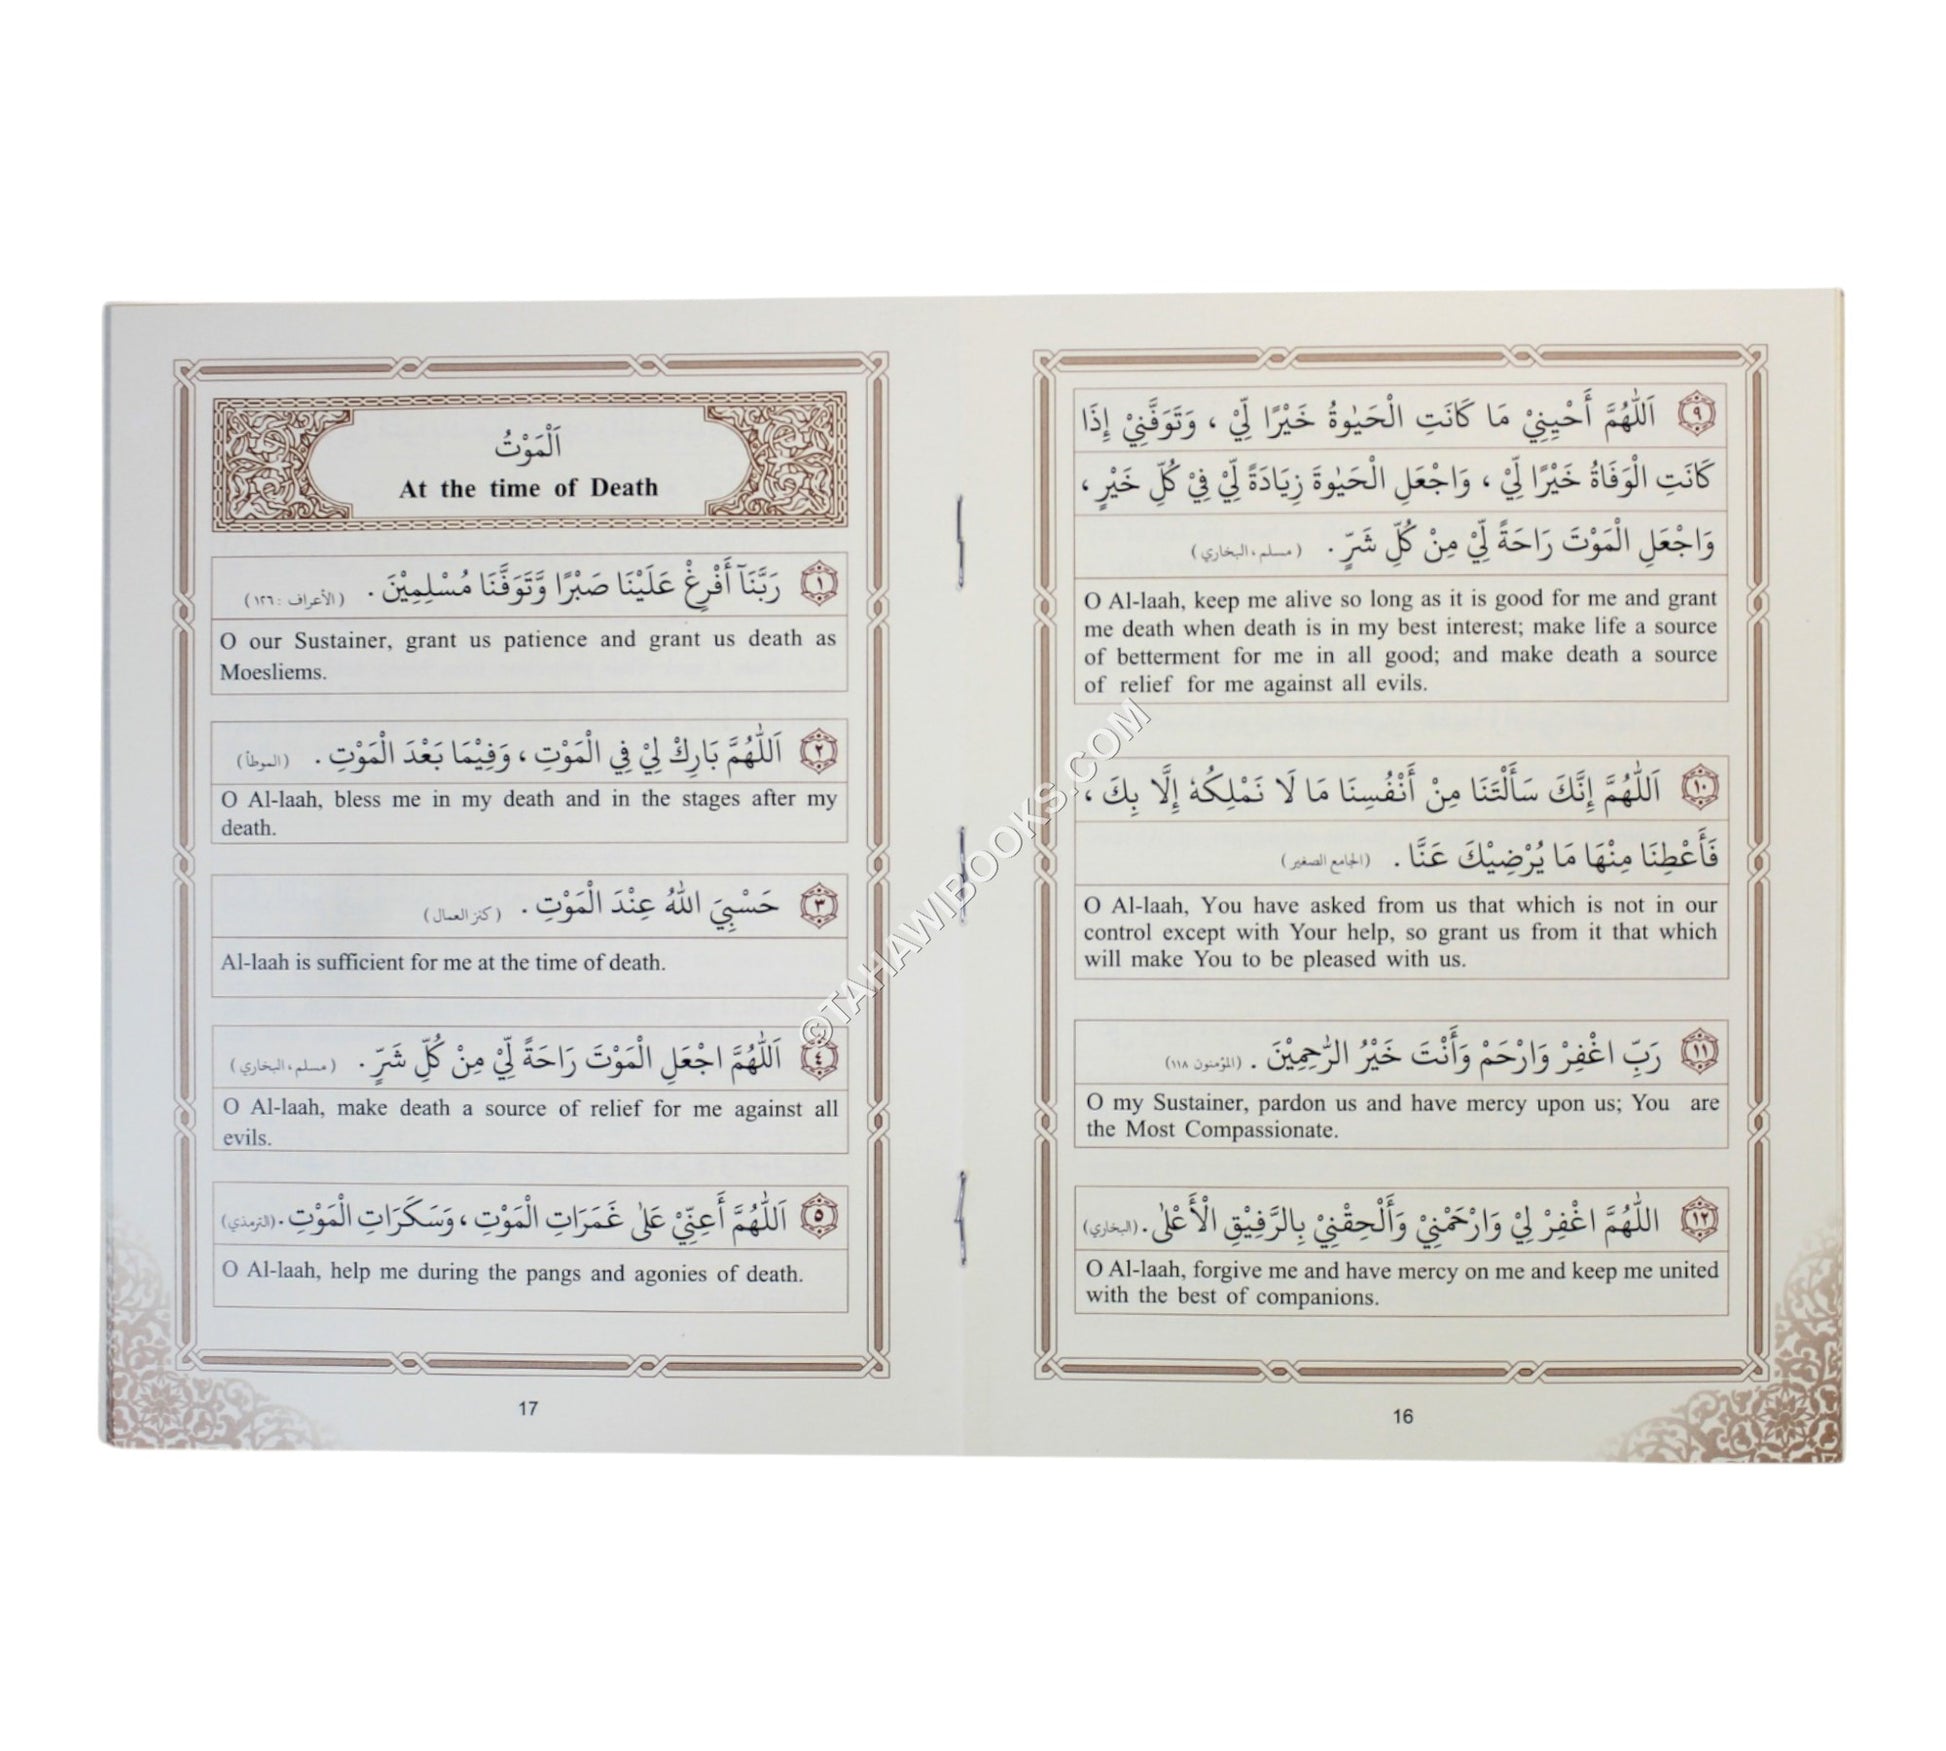 ٩ اَللّٰهُمَّ أَحْيِنِيْ مَا كَانَتِ الْحَيٰوةُ خَيْرًا لِّيْ ، وَتَوَفَّنِيْ إِذَا
كَانَتِ الْوَفَاةُ خَيْرًا لِّيْ ، وَاجْعَلِ الْحَيٰوةَ زِيَادَةً لِّيْ فِيْ كُلِّ خَيْرٍ ،
وَاجْعَلِ الْمَوْتَ رَاحَةً لِّيْ مِنْ كُلِّ شَرٍّ . (مسلم، البخاري)
O Al-laah, keep me alive so long as it is good for me and grant
me death when death is in my best interest; make life a source
of betterment for me in all good; and make death a source
of relief for me against all evils.
١٠ اَللّٰهُمَّ إِنَّكَ سَأَلْتَنَا مِنْ أَنْفُسِنَا مَا لَا نَمْلِكُهٗ إِلَّا بِكَ ،
فَأَعْطِنَا مِنْهَا مَا يُرْضِيْكَ عَنَّا . (الجامع الصغير)
O Al-laah, You have asked from us that which is not in our
control except with Your help, so grant us from it that which
will make You to be pleased with us.
١١ رَبِّ اغْفِرْ وَارْحَمْ وَأَنْتَ خَيْرُ الرّٰحِمِيْنَ . (المؤمنون ١١٨)
O my Sustainer, pardon us and have mercy upon us; You are
the Most Compassionate.
١٢ اللّٰهُمَّ اغْفِرْ لِيْ وَارْحَمْنِيْ وَأَلْحِقْنِيْ بِالرَّفِيْقِ الْأَعْلٰى. (البخاري)
O Al-laah, forgive me and have mercy on me and keep me united
with the best of companions.
16
اَلْمَوْتُ
At the time of Death
١ رَبَّنَآ أَفْرِغْ عَلَيْنَا صَبْرًا وَّتَوَفَّنَا مُسْلِمِيْنَ . (الأعراف : ١٢٦)
O our Sustainer, grant us patience and grant us death as
Moesliems.
٢ اَللّٰهُمَّ بَارِكْ لِيْ فِي الْمَوْتِ ، وَفِيْمَا بَعْدَ الْمَوْتِ . (الموطأ)
O Al-laah, bless me in my death and in the stages after my
death.
٣ حَسْبِيَ اللّٰهُ عِنْدَ الْمَوْتِ . (كنز العمال)
Al-laah is sufficient for me at the time of death.
٤ اَللّٰهُمَّ اجْعَلِ الْمَوْتَ رَاحَةً لِّيْ مِنْ كُلِّ شَرٍّ . (مسلم، البخاري)
O Al-laah, make death a source of relief for me against all
evils.
٥ اَللّٰهُمَّ أَعِنِّيْ عَلٰى غَمَرَاتِ الْمَوْتِ ، وَسَكَرَاتِ الْمَوْتِ . (الترمذي)
O Al-laah, help me during the pangs and agonies of death.
17
©TAHAWIBOOKS.COM